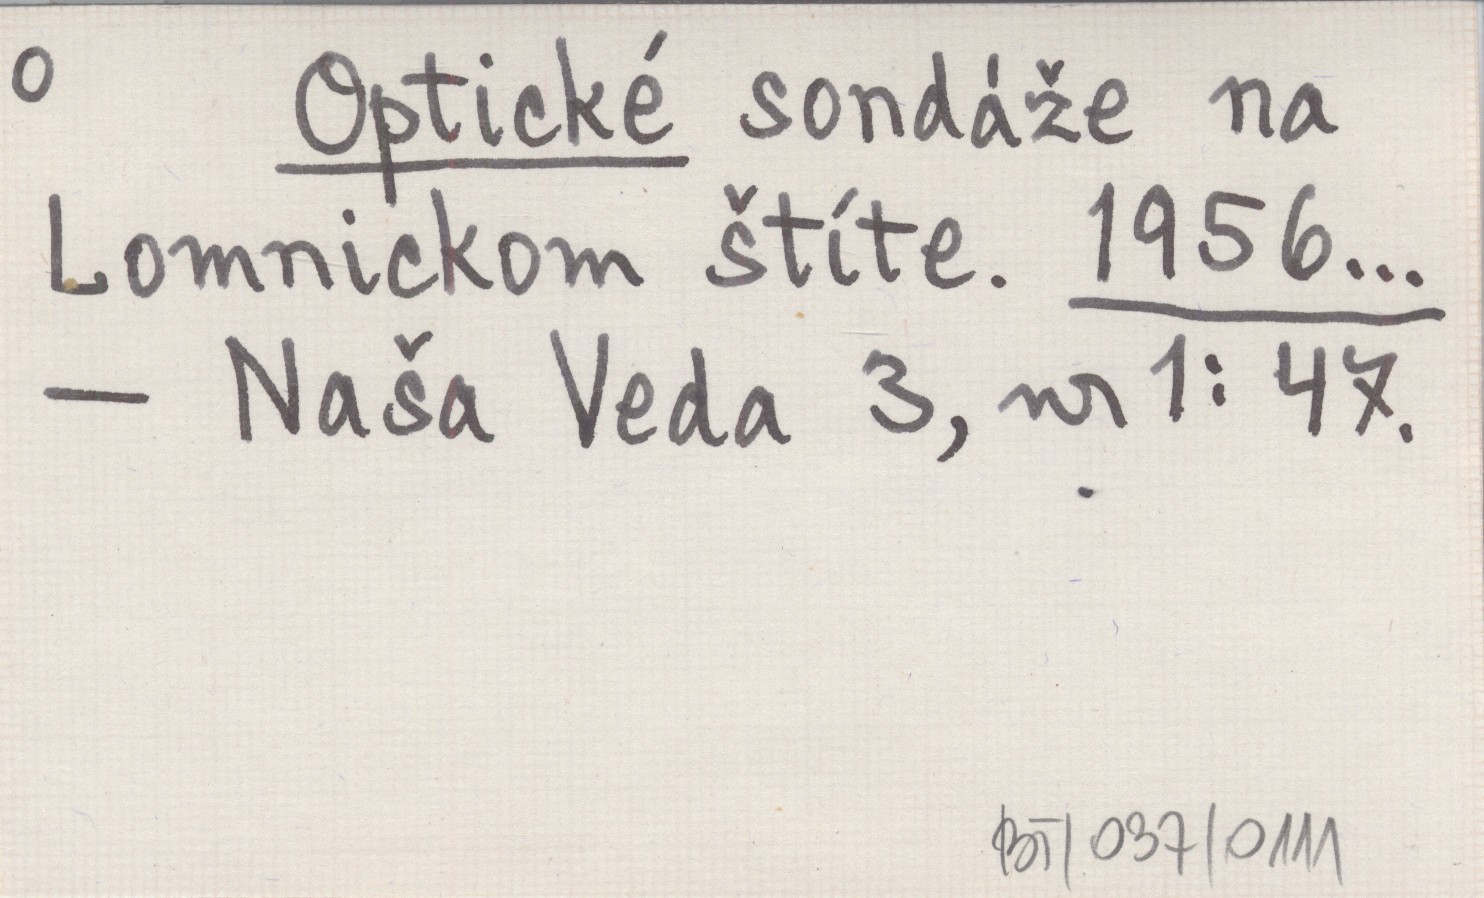 o Optické sondáže na
Lomnickom štíte. 1956...
— Naša Veda 3, nr 1: 47.
BT/037/0111